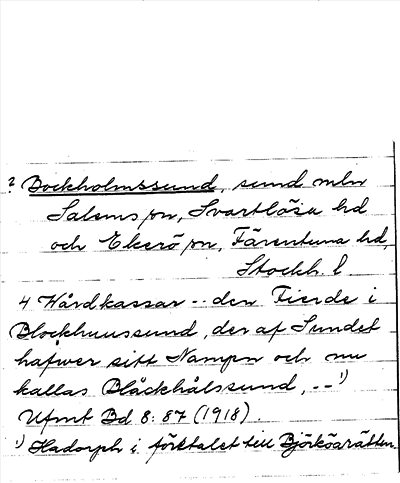 ? Bockholmssund, sund mln
Salems sn, Svartlösa hd
och Ekerö sn, Färentuna hd,
Stockh. l.
4 Wårdkassar -- den Fierde i
Blockhuussund, der af Sundet
hafwer sitt Nampn och nu
kallas Bläckhålssund, --¹)
Ufmt Bd 8: 87 (1918).
¹) Hadorph i förktalet till Björköarätten